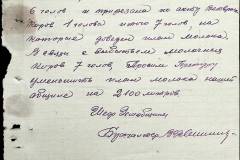 6 голов и прирезана по акту
коров 1 голова итого 7 голов на
которые доведен план молока.
В связи с выбытием молочных
коров 7 голов. Просим Прокуру
уменьшить план молока нашей
общине на 2100 литров.